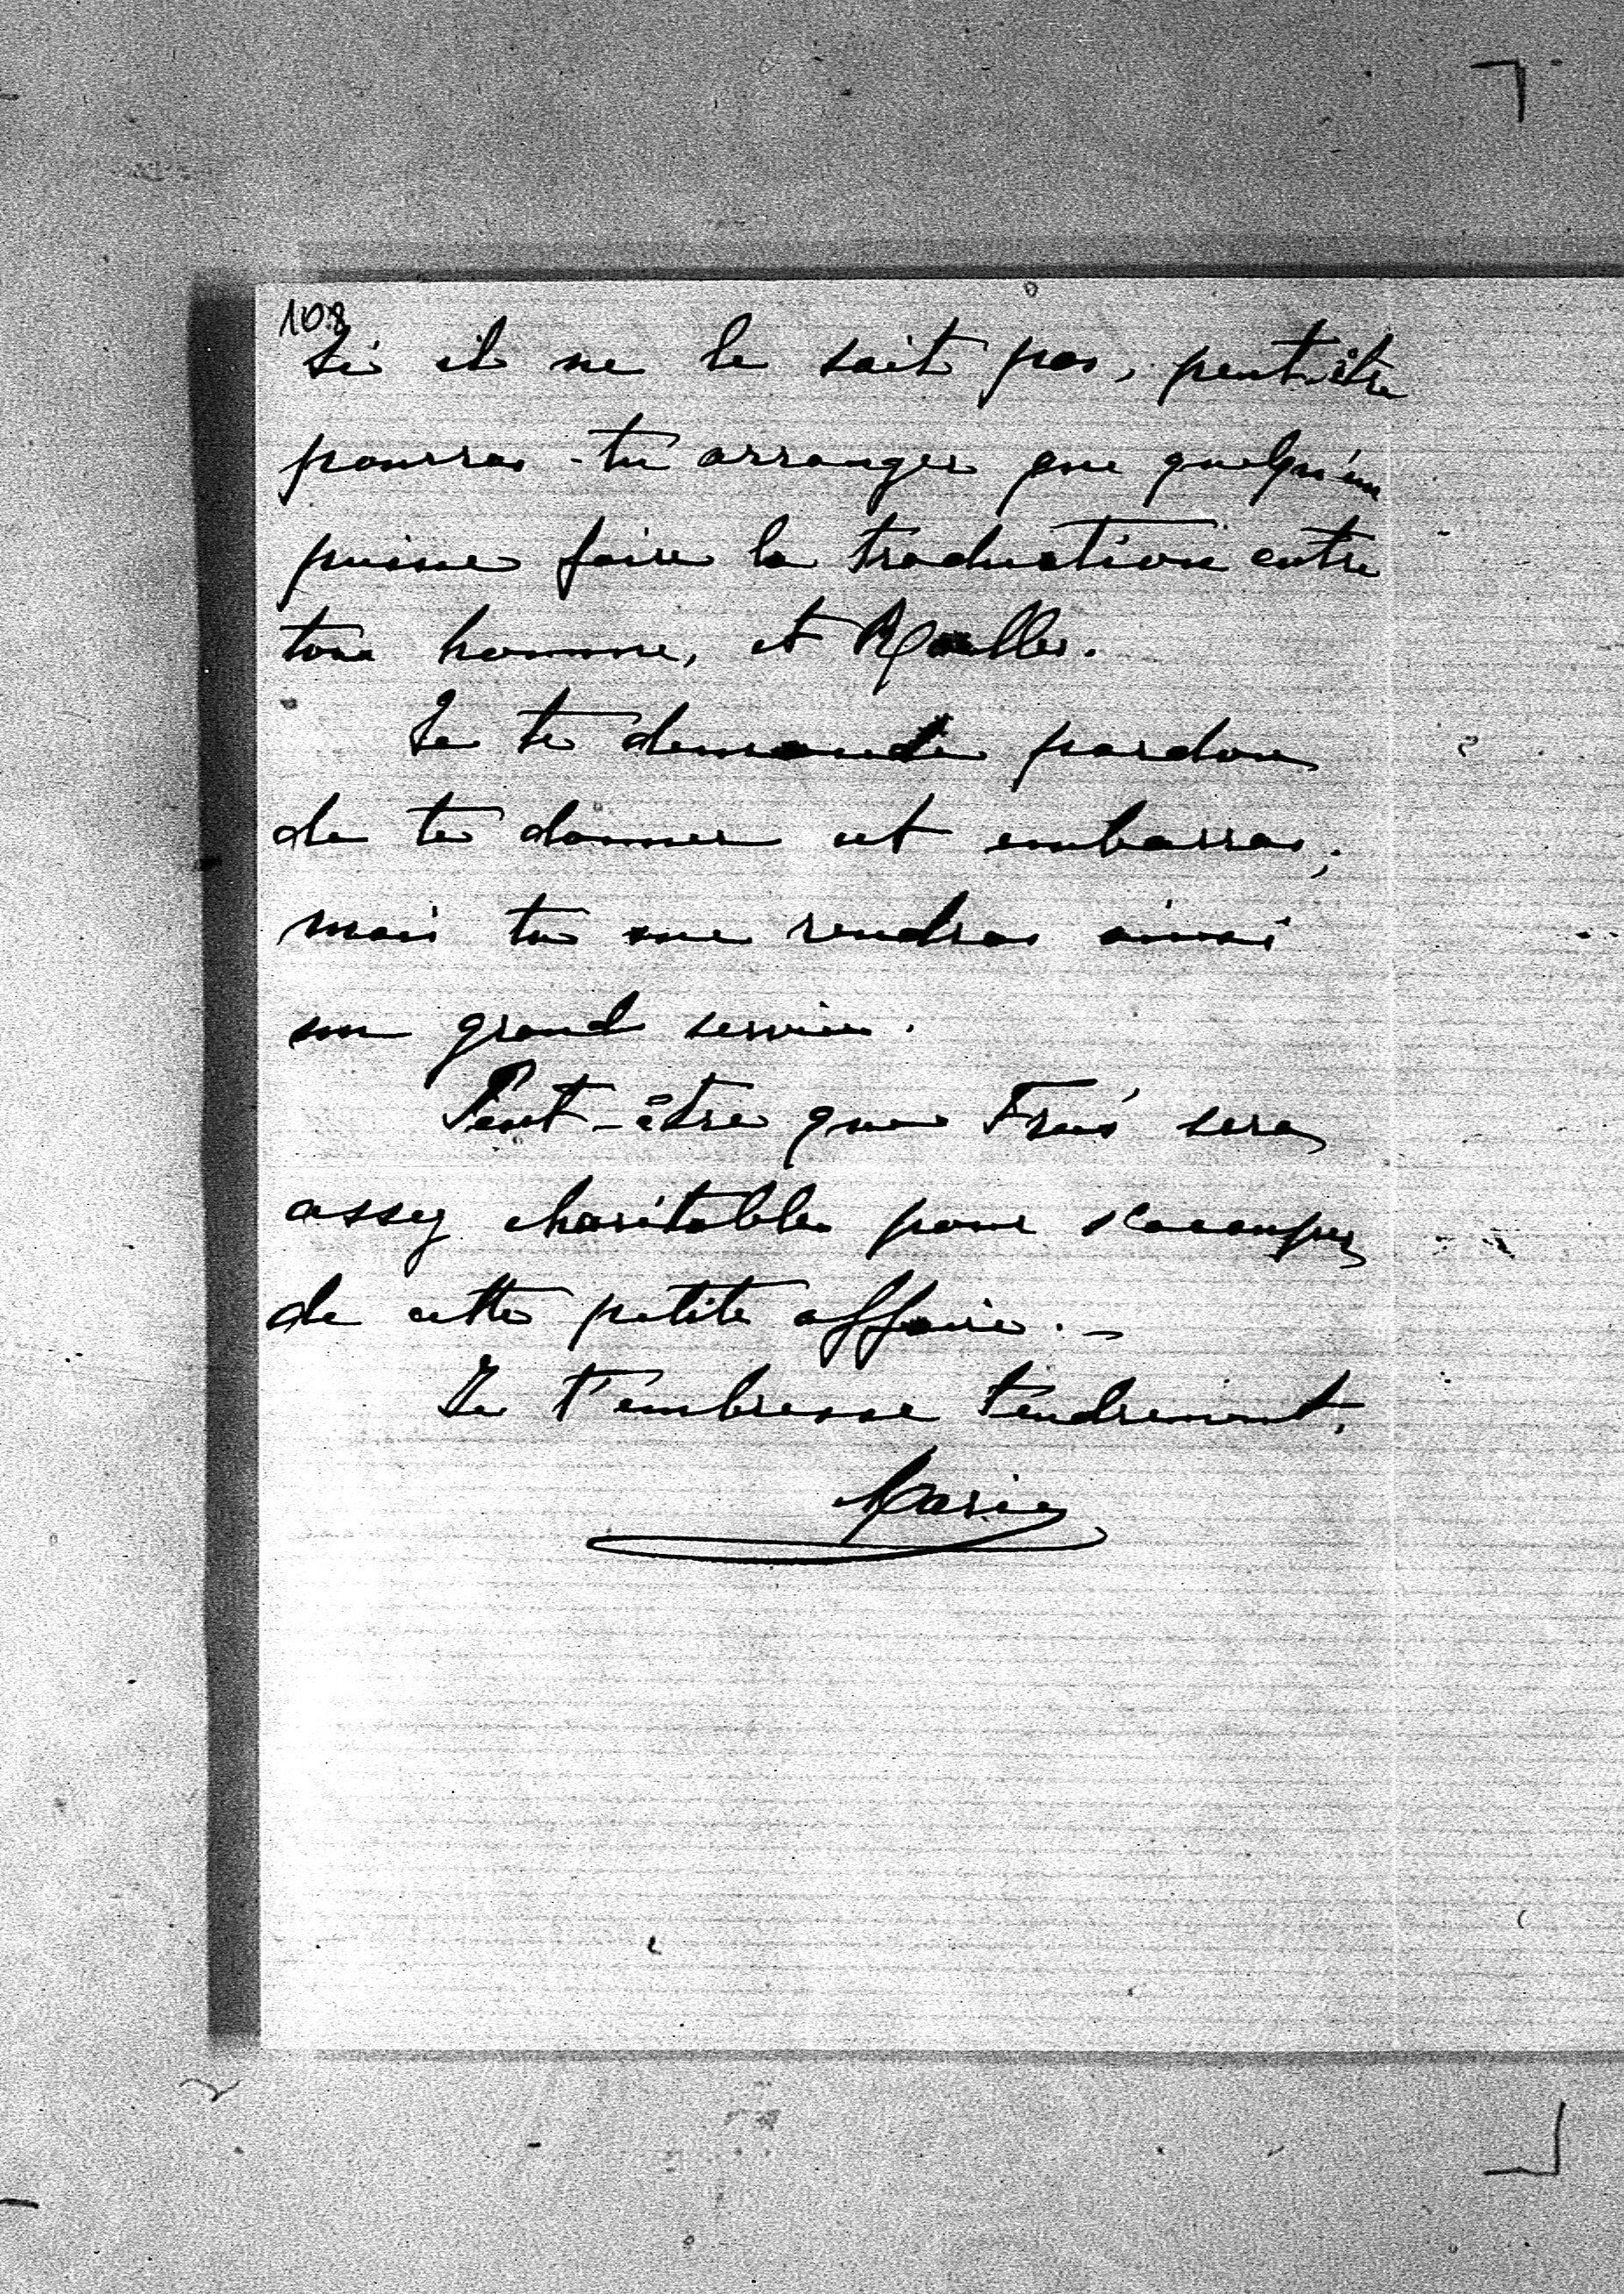 108
Si il ne le sait pas, peut-être
pourras-tu arranger que quelqu'un
puisse faire la traduction entre
ton homme, et Muller.
Je te demande pardon
de te donner cet embarras,
mais tu me rendras ainsi
un grand service.
Peut-être que sera
assez charitable pour s'occuper
de cette petite affaire. _
Je t'embrasse tendrement,
Marie